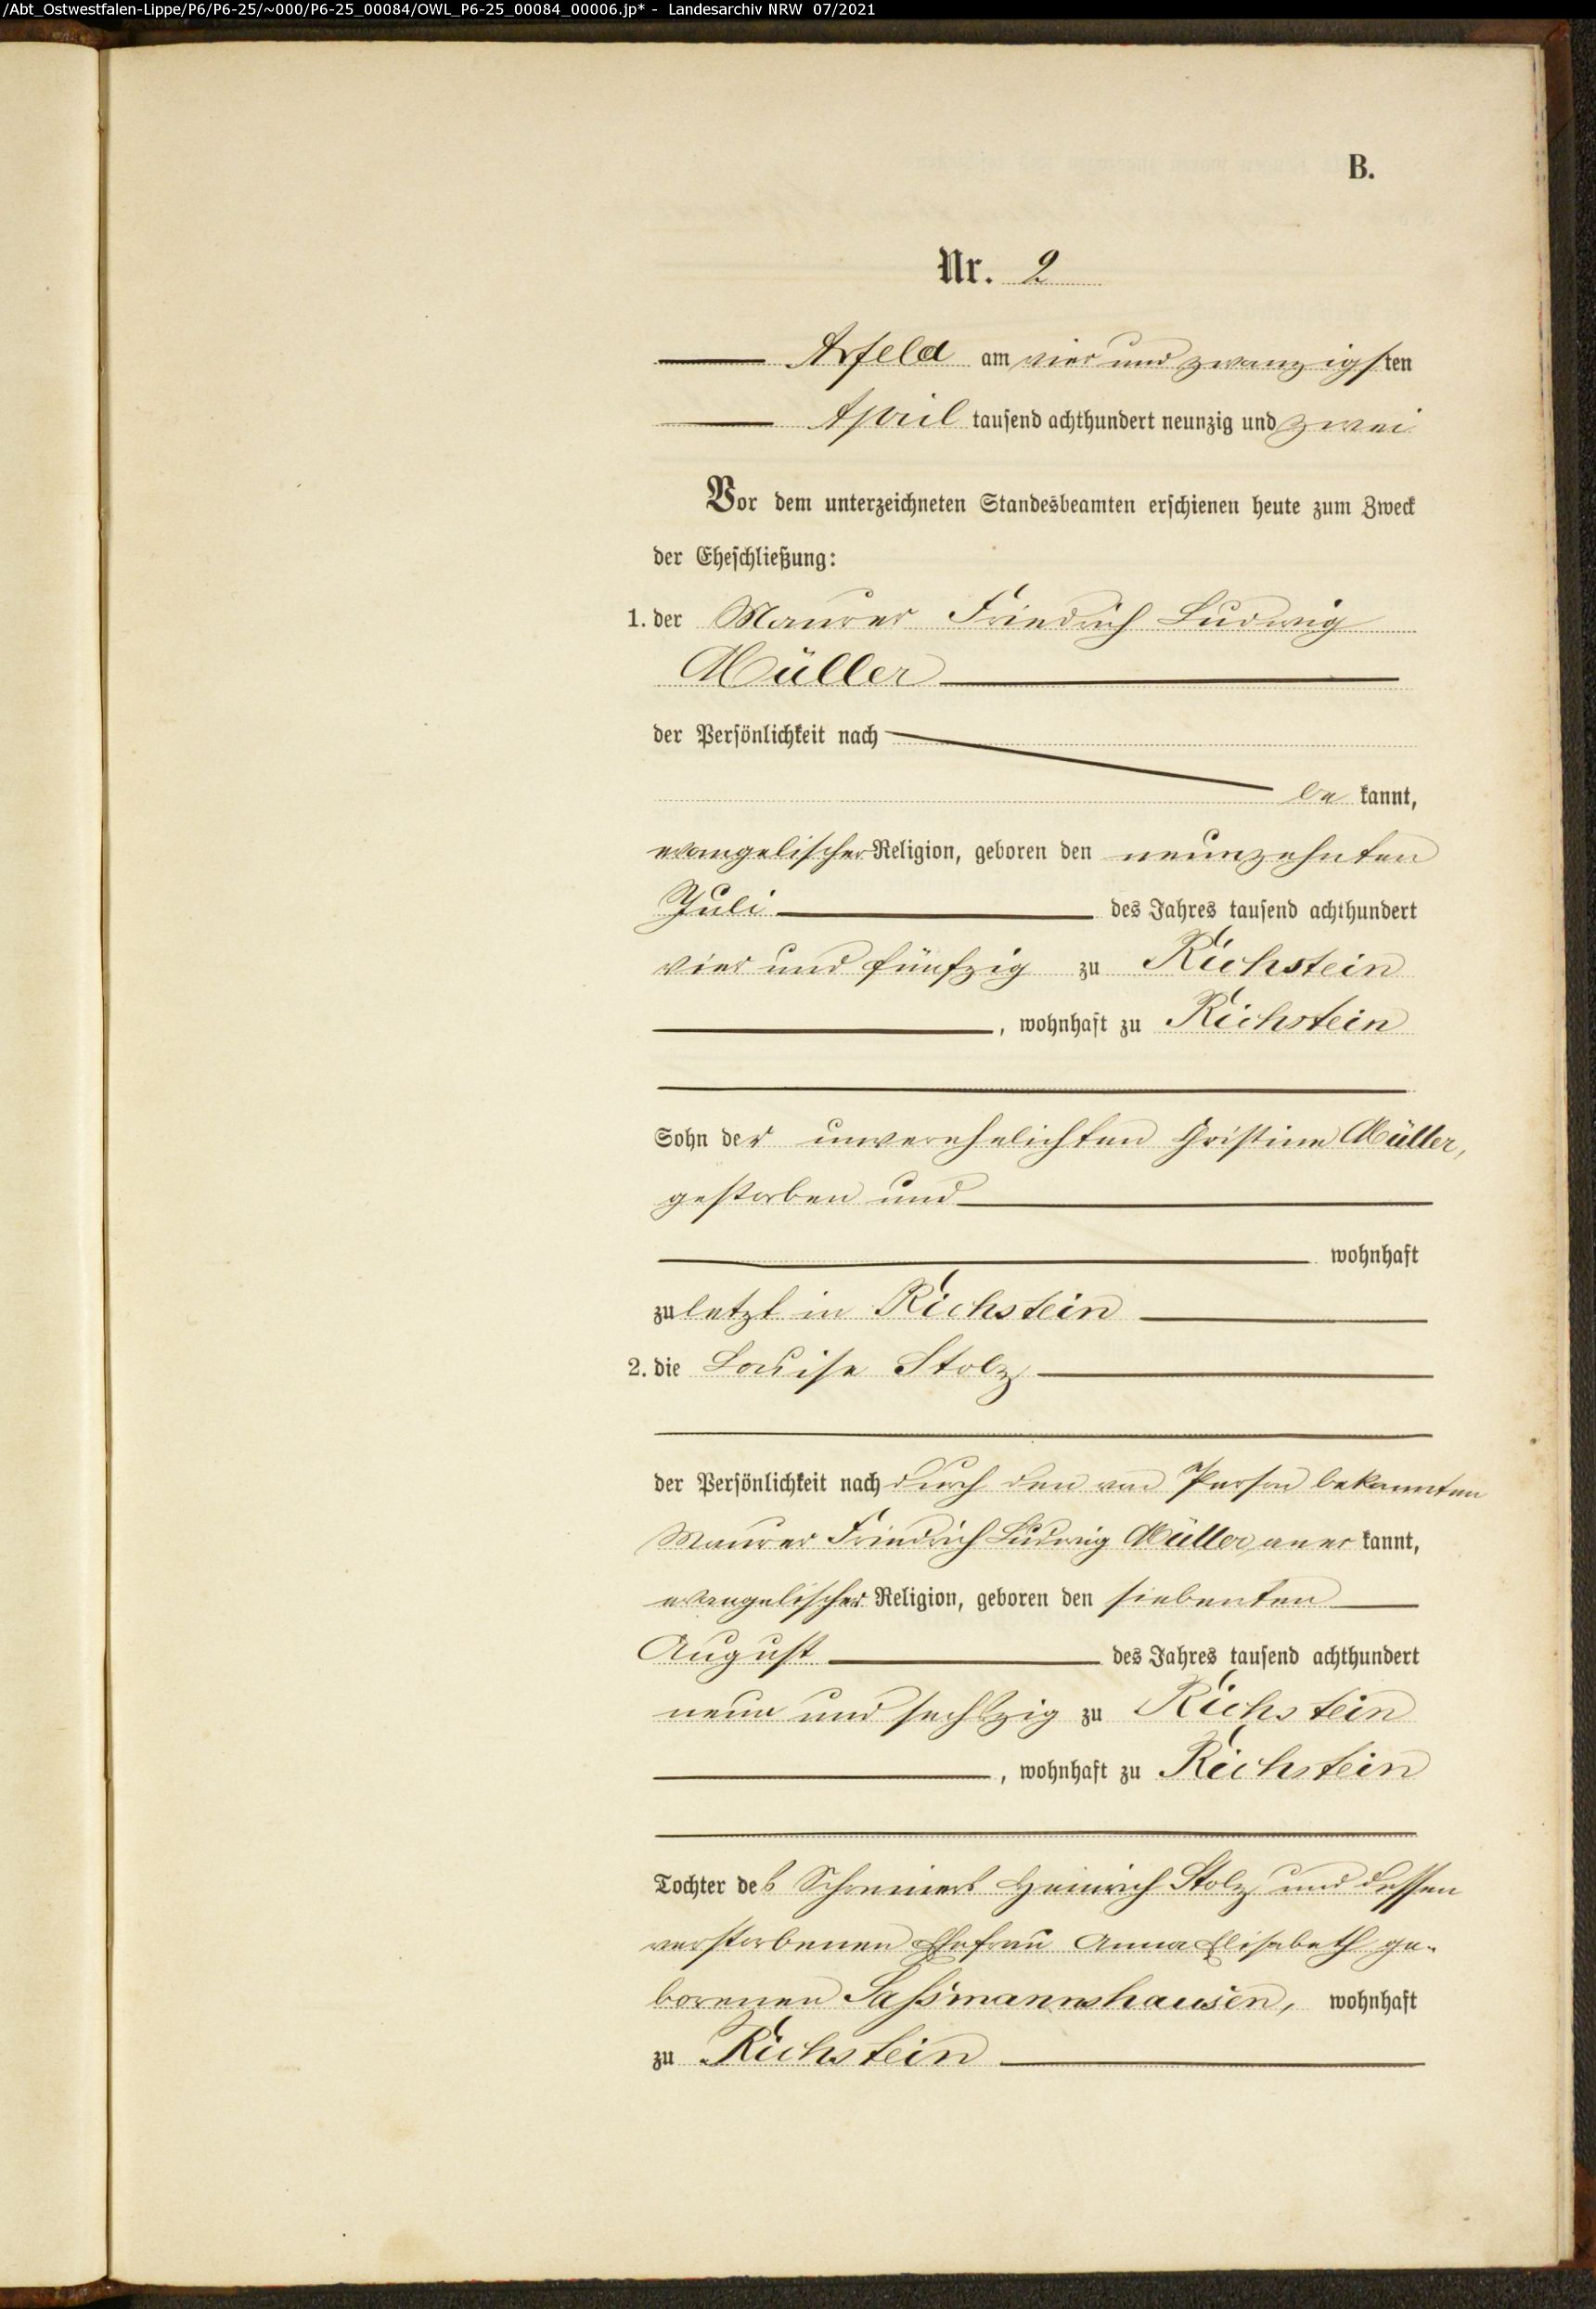 /Abt_Ostwestfalen-Lippe/P6/P6-25/~000/P6-25_00084/OWL_P6-25_00084_00006.jp* - Landesarchiv NRW 07/2021
B.
Nr. 2
Arfeld am vier und zwanzigsten
April tausend achthundert neunzig und zwei
Vor dem unterzeichneten Standesbeamten erschienen heute zum Zweck
der Eheschließung:
1. der Maurer Friedrich Ludwig
Müller
der Persönlichkeit nach
be kannt,
evangelischer Religion, geboren den neunzehnten
Juli des Jahres tausend achthundert
vier und fünfzig zu Richstein
, wohnhaft zu Richstein
Sohn der unverehelichten Christine Müller,
gestorben und
wohnhaft
zuletzt in Richstein
2. die Louise Stolz
der Persönlichkeit nach durch den von Person bekannten
Maurer Friedrich Ludwig Müller aner kannt,
evangelischer Religion, geboren den siebenten
August des Jahres tausend achthundert
neun und sechszig zu Richstein
, wohnhaft zu Richstein
Tochter des Schreiners Heinrich Stolz und dessen
verstorbenen Ehefrau Anna Elisabeth ge-
borenen Saßmannshausen, wohnhaft
zu Richstein